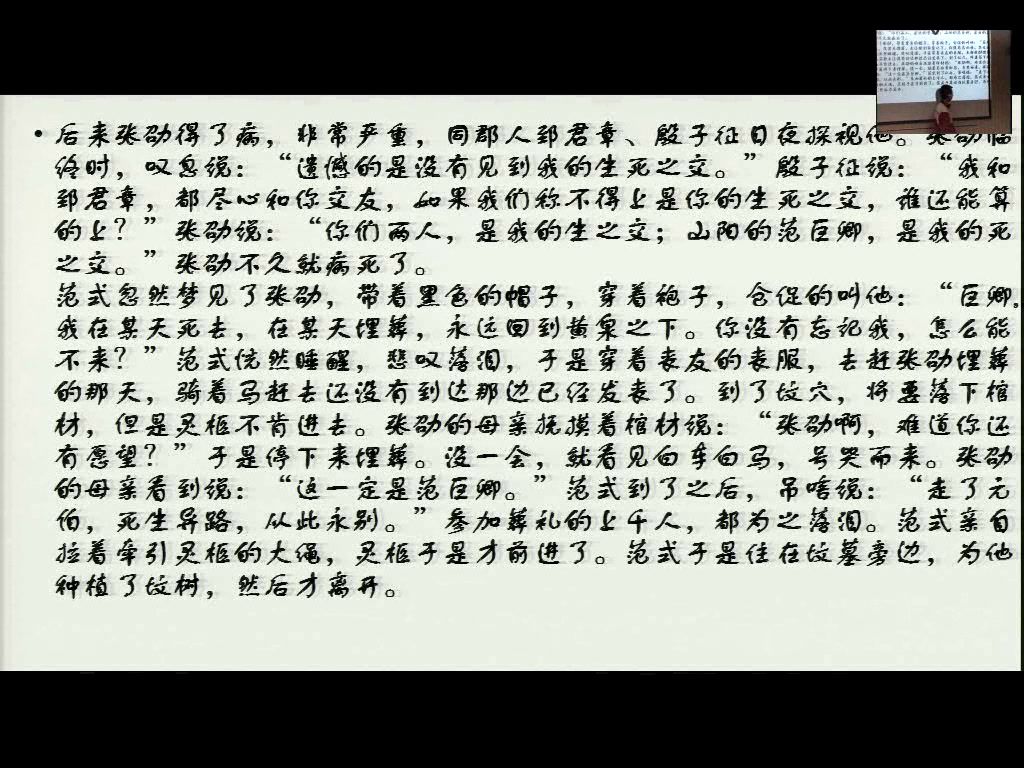 • 后来张劭得了病，非常严重，同郡人郅君章、殷子征日夜探视他。张劭临
终时，叹息说：“遗憾的是没有见到我的生死之交。”殷子征说：“我和
郅君章，都尽心和你交友，如果我们称不得上是你的生死之交，谁还能算
的上？”张劭说：“你们两人，是我的生之交；山阳的范巨卿，是我的死
之交。”张劭不久就病死了。
范式忽然梦见了张劭，带着黑色的帽子，穿着袍子，仓促的叫他：“巨卿，
我在某天死去，在某天埋葬，永远回到黄泉之下。你没有忘记我，怎么能
不来？”范式恍然睡醒，悲叹落泪，于是穿着丧友的丧服，去赶张劭埋葬
的那天，骑着马赶去还没有到达那边已经发丧了。到了坟穴，将要落下棺
材，但是灵柩不肯进去。张劭的母亲抚摸着棺材说：“张劭啊，难道你还
有愿望？”于是停下来埋葬。没一会，就看见白车白马，号哭而来。张劭
的母亲看到说：“这一定是范巨卿。”范式到了之后，吊唁说：“走了元
伯，死生异路，从此永别。”参加葬礼的上千人，都为之落泪。范式亲自
拉着牵引灵柩的大绳，灵柩于是才前进了。范式于是住在坟墓旁边，为他
种植了坟树，然后才离开。